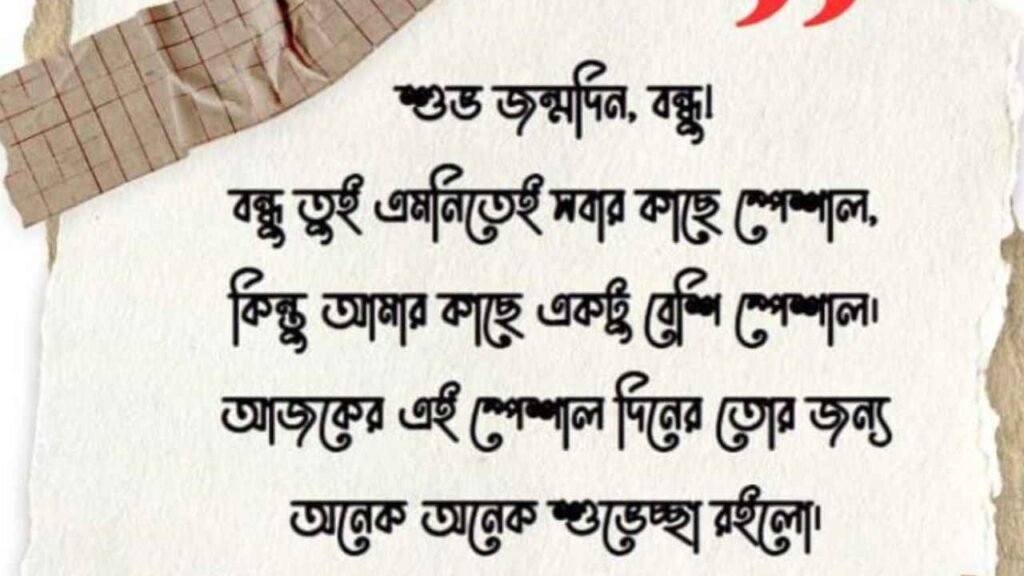 শুভ জন্মদিন, বন্ধু!
বন্ধু তুই এমনিতেই সবার কাছে স্পেশাল,
কিন্তু আমার কাছে একটু বেশি স্পেশাল।
আজকের এই স্পেশাল দিনের তোর জন্য
অনেক অনেক শুভেচ্ছা রইলো।